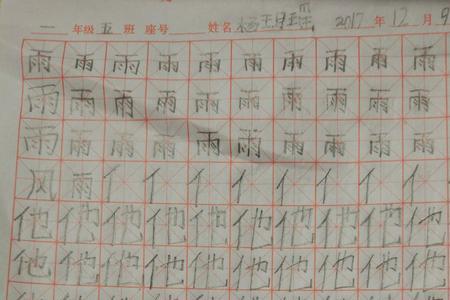 一 年级 五 班 座号 姓名 杨 2017 年 12 月 9
雨 雨 雨 雨 雨 雨 雨 雨 雨 雨
雨 雨 雨 雨 雨 雨 雨 雨 雨 雨
雨 雨 雨 雨 雨 雨 雨 雨 雨 雨
风 雨 亻 亻 亻 亻 亻 亻 亻 亻
他 他 他 他 他 他 他 他 他 他
他 他 他 他 他 他 他 他 他 他